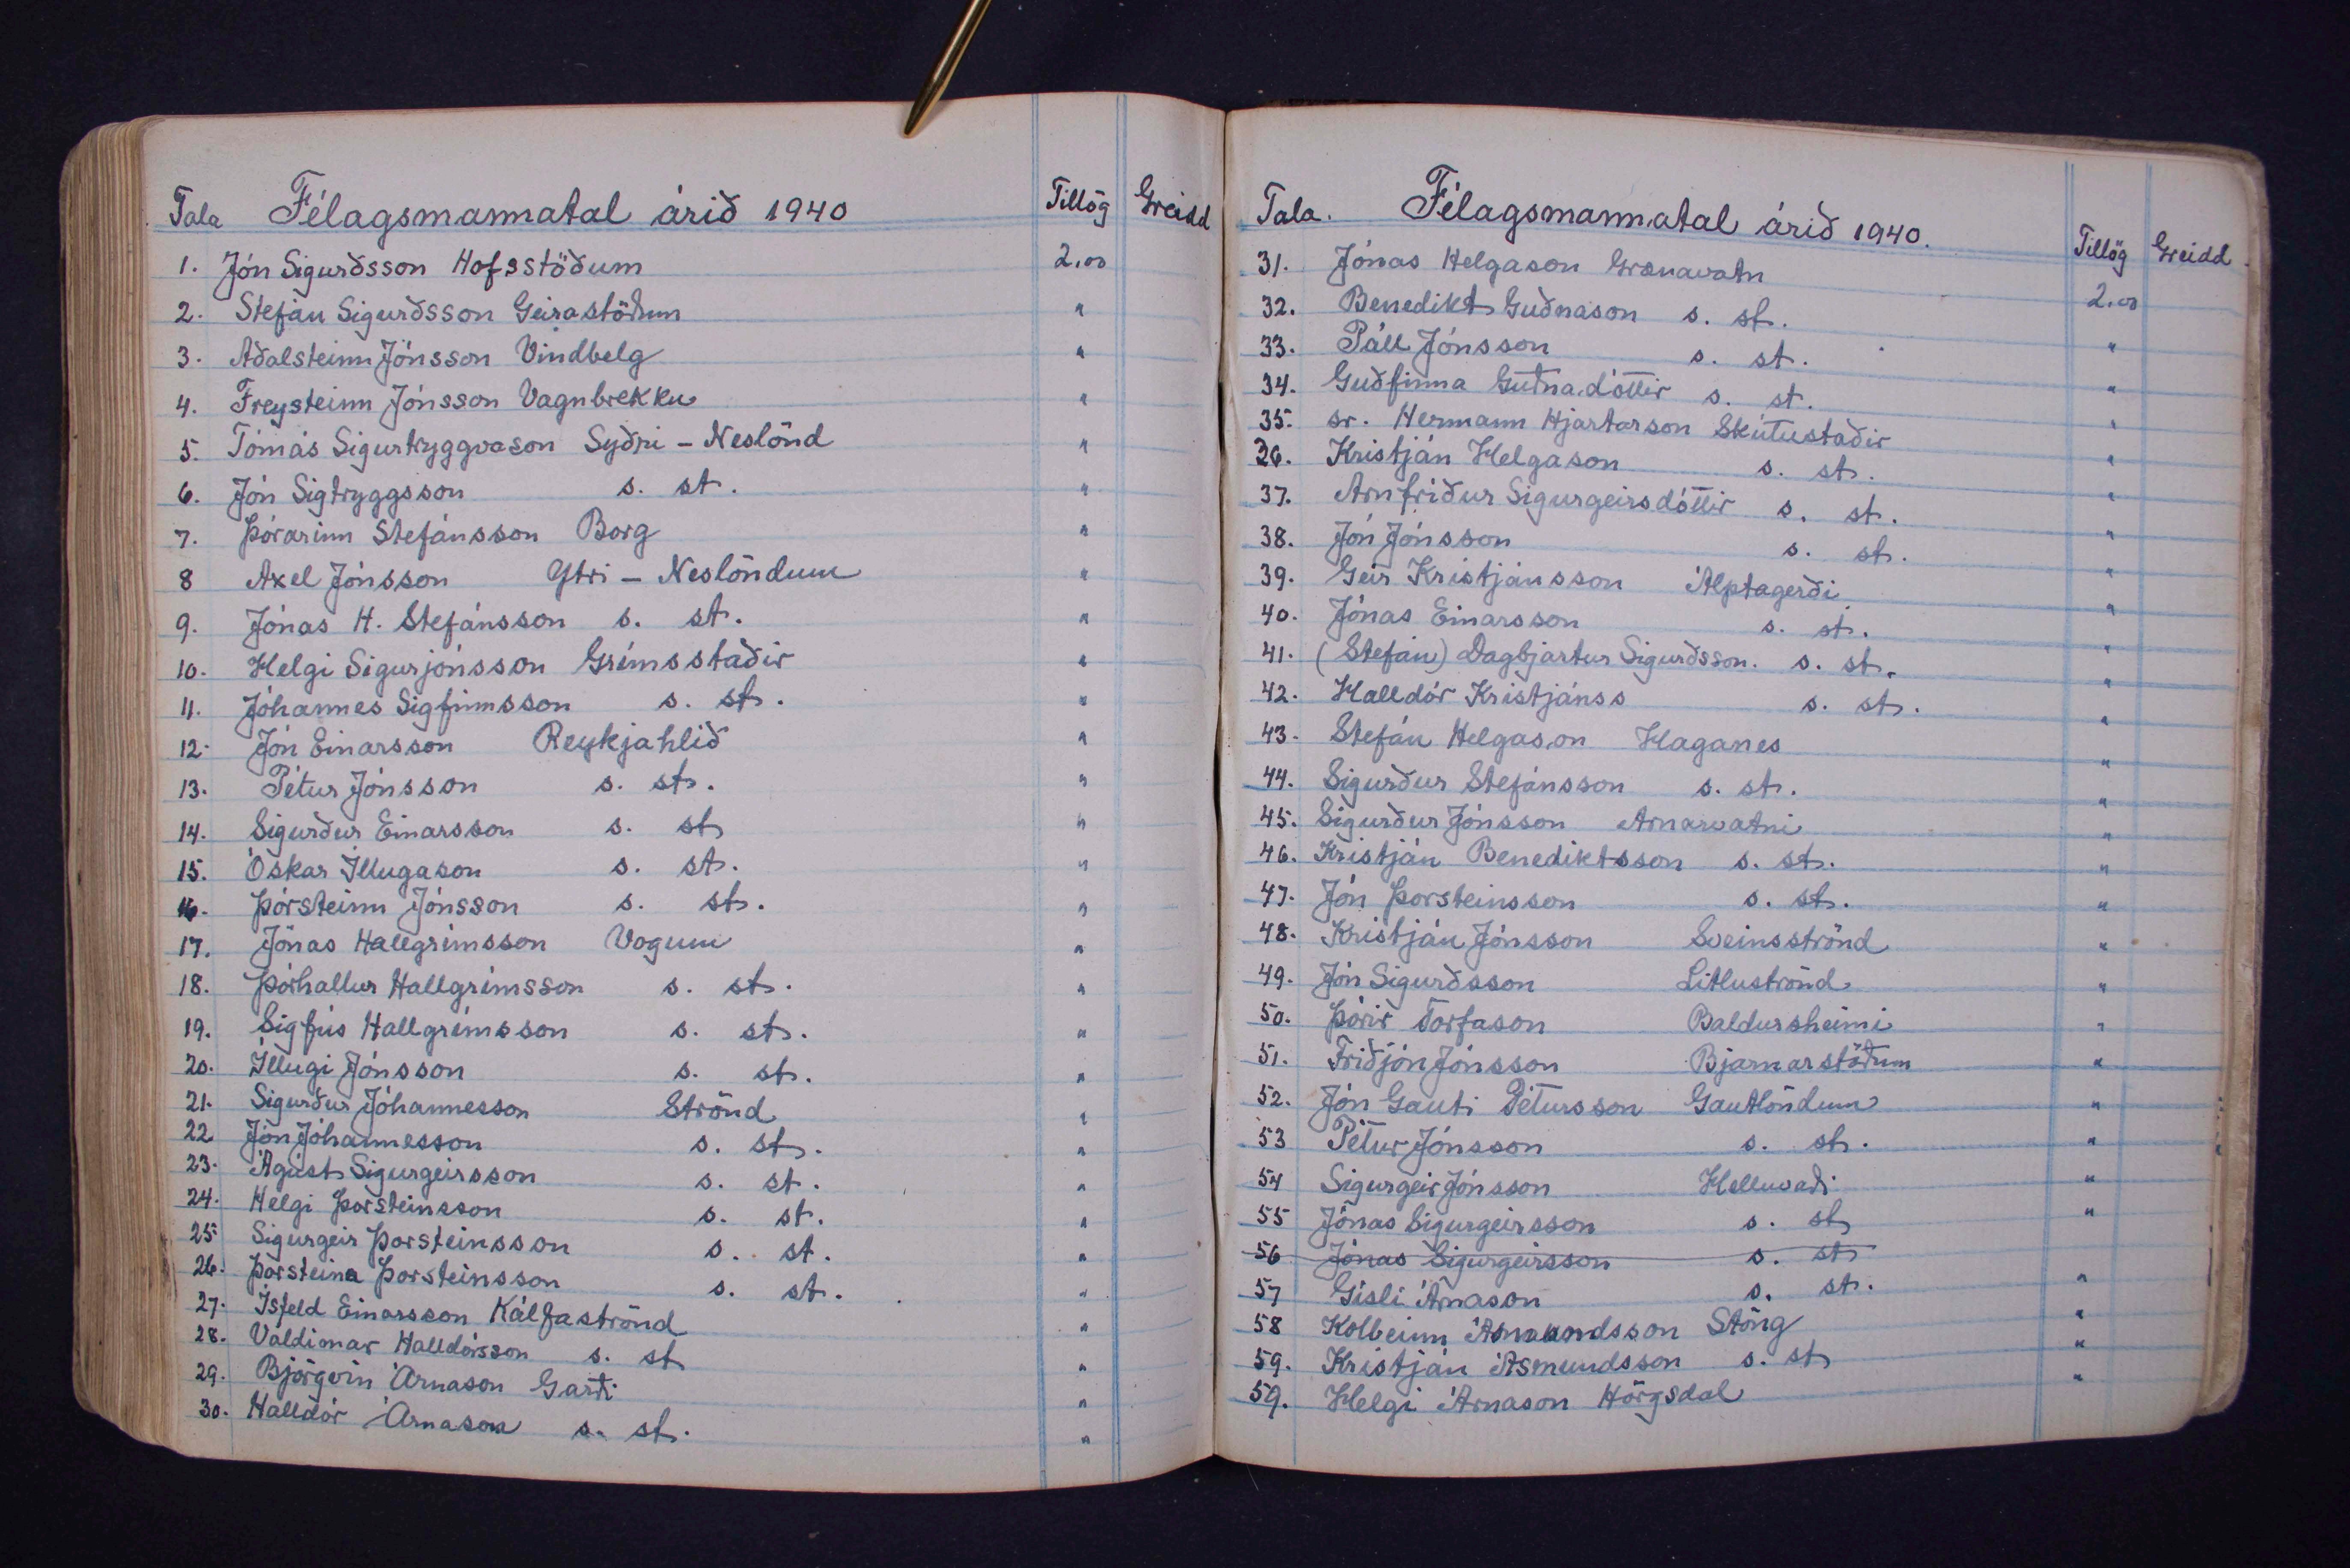 Tala Félagsmannatal árið 1940 Tillög Greidd
1. Jón Sigurðsson Hofsstöðum 2.00
2. Stefán Sigurðsson Geirastöðum "
3. Aðalsteinn Jónsson Vindbelg "
4. Freysteinn Jónsson Vagnbrekku "
5. Tómás Sigurtryggvason Syðri - Neslönd "
6. Jón Sigtryggsson s. st. "
7. Þórarinn Stefánsson Borg "
8 Axel Jónsson Ytri - Neslöndum "
9. Jónas H. Stefánsson s. st. "
10. Helgi Sigurjónsson Grímsstaðir "
11. Jóhannes Sigfinnsson s. st. "
12. Jón Einarsson Reykjahlið "
13. Pétur Jónsson s. st. "
14. Sigurður Einarsson s. st "
15. Óskar Illugason s. st. "
16. Þórsteinn Jónsson s. st. "
17. Jónas Hallgrímsson Vogum "
18. Þórhallur Hallgrímsson s. st. "
19. Sigfús Hallgrímsson s. st. "
20. Illugi Jónsson s. st. "
21. Sigurður Jóhannesson Strönd "
22 Jón Jóhannesson s. st. "
23. Ágúst Sigurgeirsson s. st. "
24. Helgi Þorsteinsson s. st. "
25 Sigurgeir Þorsteinsson s. st. "
26. Þorsteina Þorsteinsson s. st. "
27. Ísfeld Einarsson Kálfaströnd "
28. Valdimar Halldórsson s. st "
29. Björgvin Árnason Garði "
30. Halldór Árnason s. st. "
Tala. Félagsmannatal árið 1940. Tillög Greidd
31. Jónas Helgason Grænavatn 2.00
32. Benedikt Guðnason s. st. "
33. Páll Jónsson s. st. "
34. Guðfinna Guðnadóttir s. st. "
35. sr. Hermann Hjartarson Skútustaðir "
36. Kristján Helgason s. st. "
37. Arnfríður Sigurgeirsdóttir s. st. "
38. Jón Jónsson s. st. "
39. Geir Kristjánsson Álptagerði "
40. Jónas Einarsson s. st. "
41. (Stefán) Dagbjartur Sigurðsson. s. st. "
42. Halldór Kristjánss s. st. "
43. Stefán Helgason Haganes "
44. Sigurður Stefánsson s. st. "
45. Sigurður Jónsson Arnarvatni "
46. Kristján Benediktsson s. st. "
47. Jón Þorsteinsson s. st. "
48. Kristján Jónsson Sveinsströnd "
49. Jón Sigurðsson Litluströnd "
50. Þórir Torfason Baldursheimi "
51. Friðjón Jónsson Bjarnarstöðum "
52. Jón Gauti Pétursson Gautlöndum "
53 Pétur Jónsson s. st. "
54 Sigurgeir Jónsson Helluvaði "
55 Jónas Sigurgeirsson s. st "
56 Jónas Sigurgeirsson s. st
57 Gísli Árnason s. st. "
58 Kolbeinn Ásmundsson Stöng "
59. Kristján Ásmundsson s. st "
59. Helgi Árnason Hörgsdal "